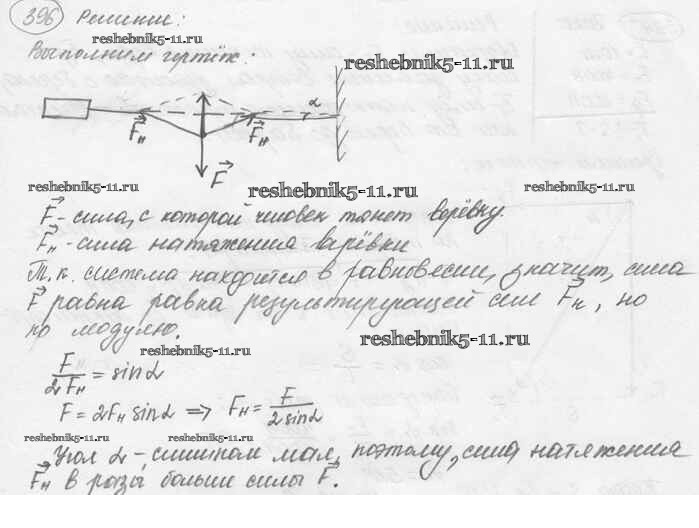 396 Решение:
reshebnik5-11.ru
Выполним чертёж:
reshebnik5-11.ru
α
F⃗н F⃗н
F⃗
reshebnik5-11.ru reshebnik5-11.ru reshebnik5-11.ru
F⃗ - сила, с которой человек тянет верёвку.
F⃗н - сила натяжения верёвки
Т.к. система находится в равновесии, значит, сила
F⃗ равна равна результирующей сил F⃗н, но
по модулю.
reshebnik5-11.ru reshebnik5-11.ru
F/2Fн = sinα
F = 2Fн sinα => Fн = F/2sinα
reshebnik5-11.ru reshebnik5-11.ru
Угол α - слишком мал, поэтому, сила натяжения
F⃗н в разы больше силы F⃗.